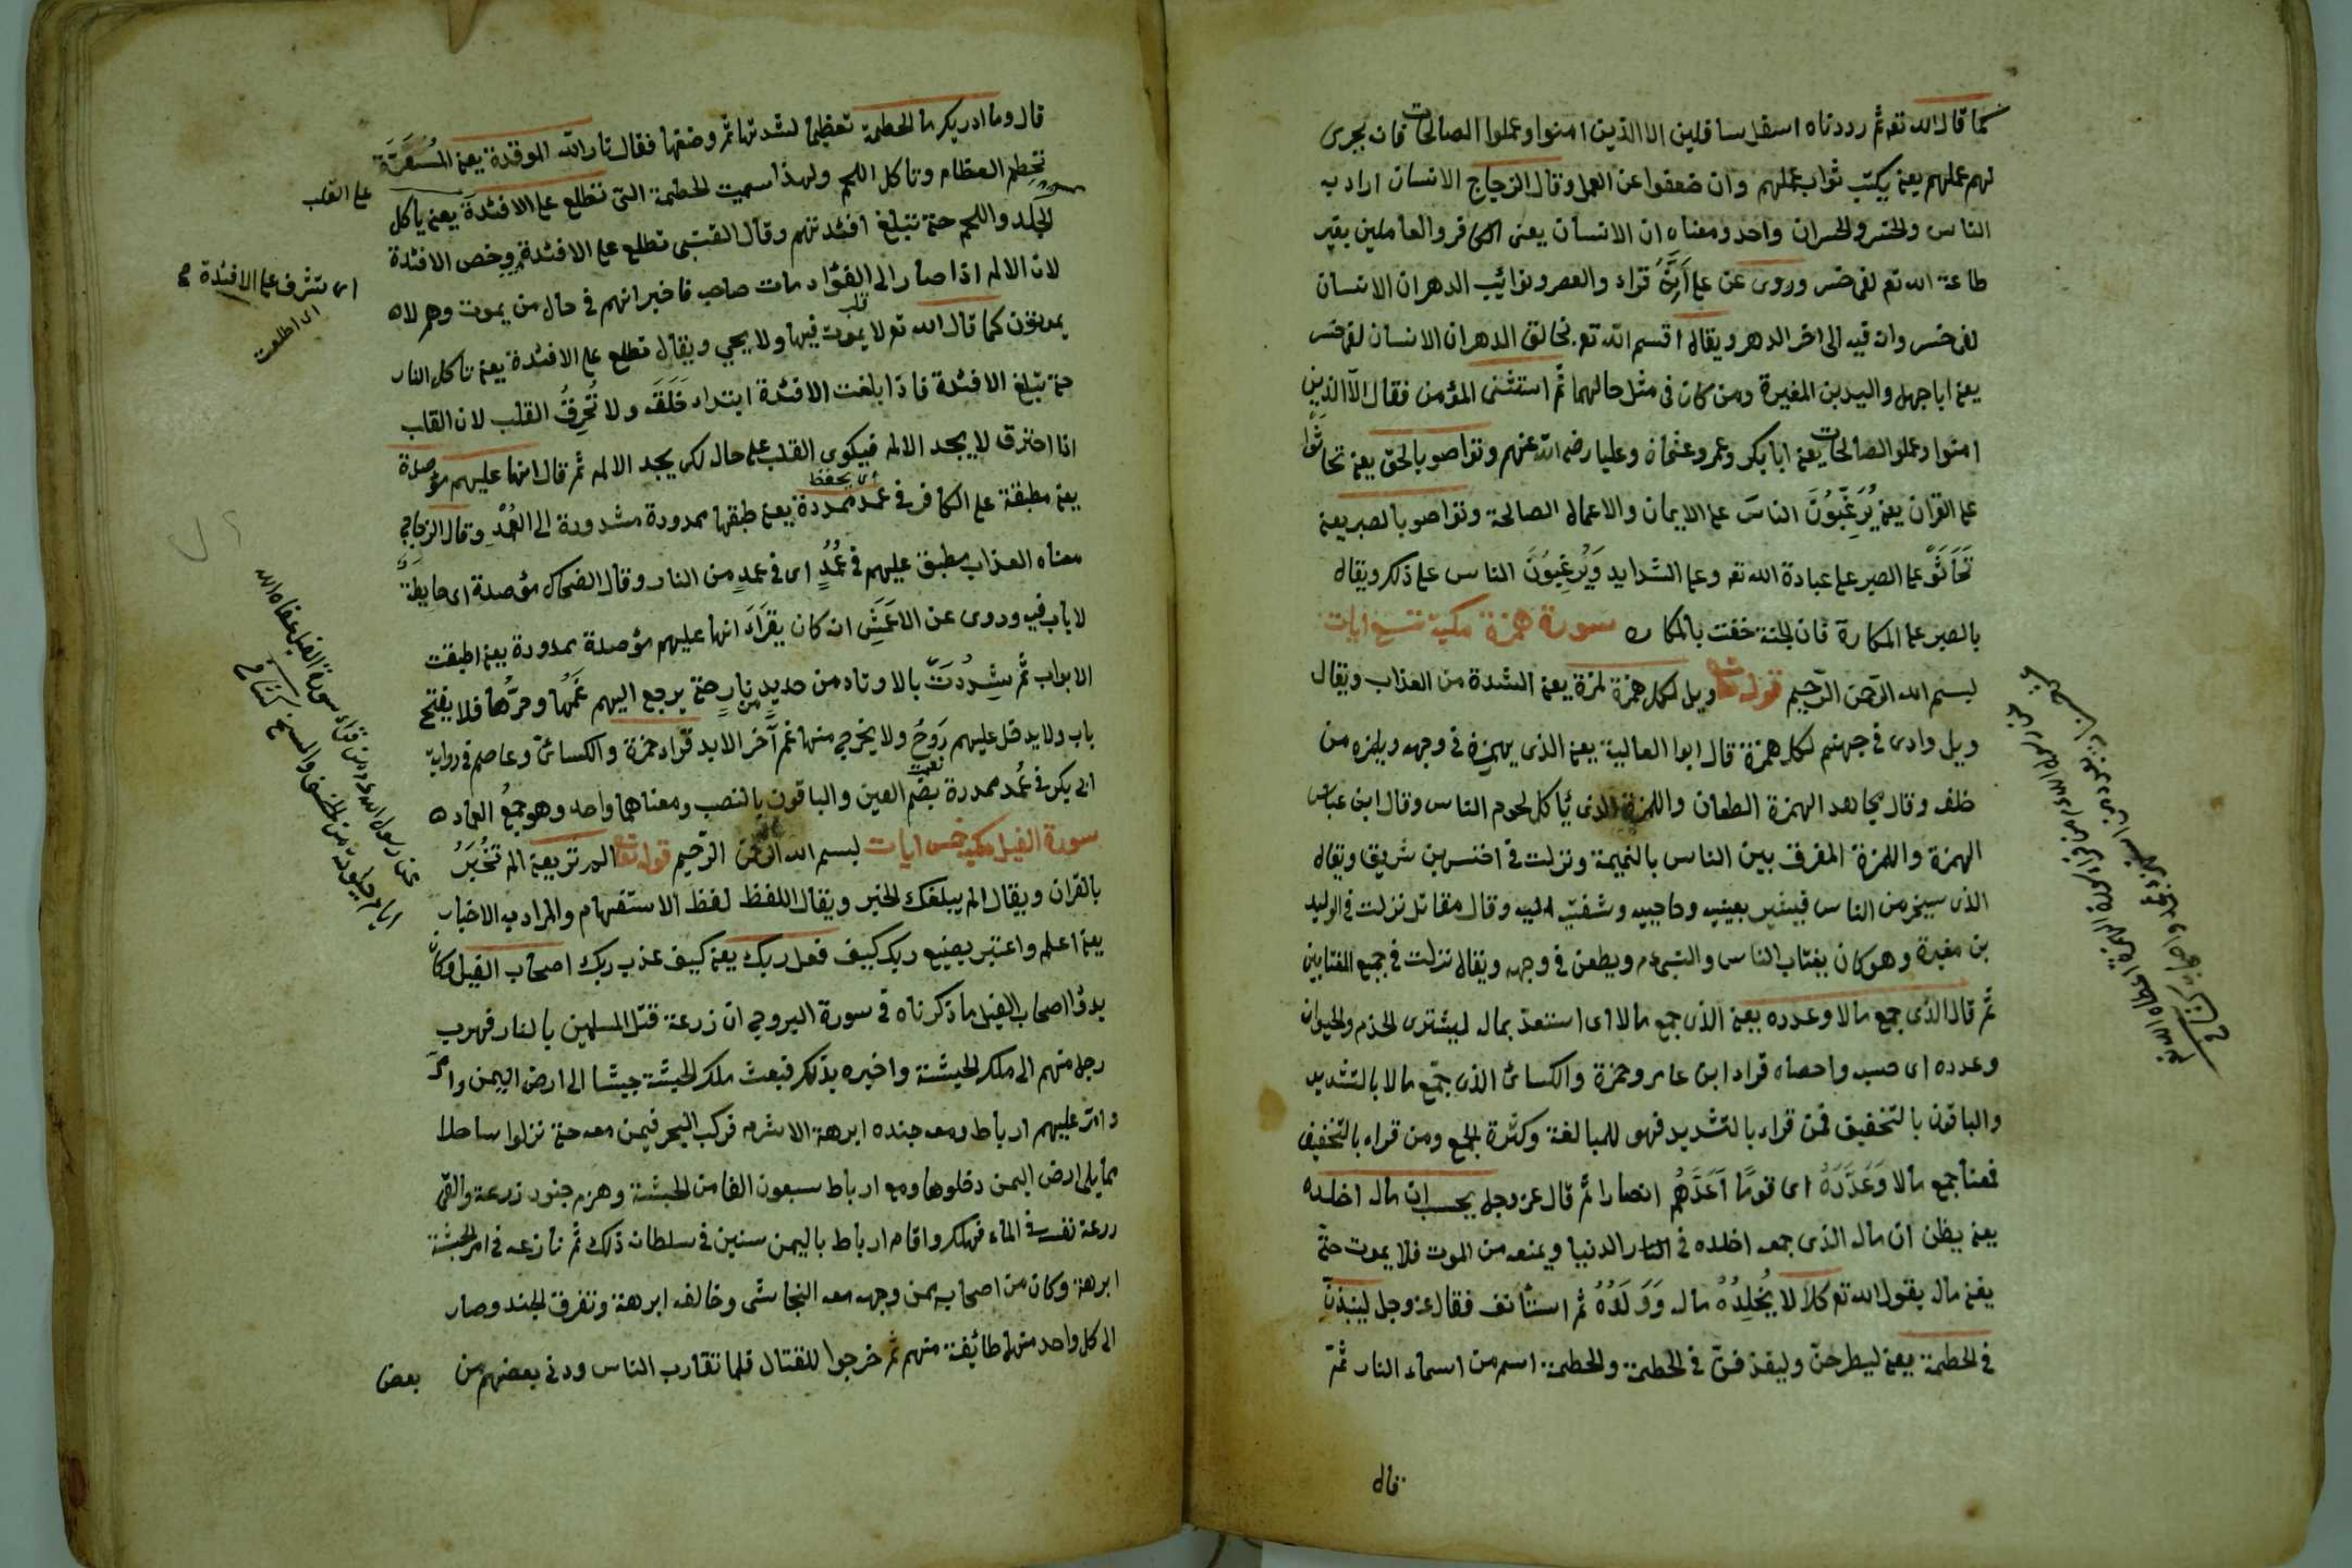 كما قال الله تع ثم رددناه اسفل سافلين الا الذين امنوا وعملوا الصالحات فان يجرى
لهم عملهم يعنى يكتب ثواب عملهم وان ضعفوا عن العمل وقال الزجاج الانسان اراد به
الناس والخسر والخسران واحد ومعناه ان الانسان يعنى الكافر والعاملين بغير
طاعة الله تع لفى خسر وروى عن على انه قراء والعصر ونوائب الدهر ان الانسان
لفى خسر وانه فيه الى اخر الدهر ويقال اقسم الله تع بخالق الدهر ان الانسان لفى خسر
يعنى ابا جهل واليد بن المغيرة ومن كان فى مثل حالهما ثم استثنى المؤمن فقال الا الذين
امنوا وعملوا الصالحات يعنى ابا بكر وعمر وعثمان وعليا رضى الله عنهم وتواصو بالحق يعنى تحاثوا
على القران يعنى يُرَغِّبُونَ الناسَ على الايمان والاعمال الصالحة وتواصو بالصبر يعنى
تَحَاثَوْ على الصبر على عبادة الله تع وعلى الشدايد وَيُرغِبُونَ الناس على ذلك ويقال
بالصبر على المكارة فان الجنة حفت بالمكاره سورة همزة مكية تسع ايات
بسم الله الرحمن الرحيم قوله تعالى ويل لكل همزة لمزة يعنى الشدة من العذاب ويقال
ويل وادى فى جهنم لكل همزة قال ابوا العالية يعنى الذى يهمزه فى وجهه ويلمزه من
خلفه وقال مجاهد الهمزة الطعان واللمزة الذى يأكل لحوم الناس وقال ابن عباس
الهمزة واللمزة المفرق بين الناس بالنميمة ونزلت فى اخنس بن شريق ويقال
الذى سيخر من الناس فيشير بعينيه وحاجبيه وشفتيه اليه وقال مقاتل نزلت فى الوليد
بن مغيرة وهو كان يغتاب الناس والنبى عم ويطعن فى وجهه ويقال نزلت فى جميع المغتابين
ثم قال الذى جمع مالا وعدده يعنى الذى جمع مالا اى استعدّ بماله ليشترى الخدم والحيوان
وعدده اى حسبه واحصاه قراء ابن عامر وحمزة والكسائى الذى جمّع مالا بالتشديد
والباقون بالتخفيف فمن قراء بالتشديد فهو للمبالغة وكثرة الجمع ومن قراء بالتخفيف
فمعناه جمع مالا وَعَدَّدَهُ اى قومًا اَعَدَّهُم انصارا ثم قال عز وجل يحسب ان ماله اخلده
يعنى يظن ان ماله الذى جمعه اخلده فى النار الدنيا ويمنعه من الموت فلا يموت حتى
يفنى ماله يقول الله تع كلا لا يُخلِدُهُ ماله وَوَلَدُهُ ثم استأنف فقال عز وجل لينبذن
فى الحطمة يعنى ليطرحن وليقذفن فى الحطمة والحطمة اسم من اسماء النار ثم
قال
قال وما ادريك ما الحطمة تعظيما لشدتها ثم وصفها فقال نار الله الموقدة يعنى المُسَعَّرَة
تحطم العظام وتاكل اللحم ولهذا سميت الحطمة التى تطلع على الافئدة يعنى ياكل
على القلب
الجلد واللحم حتى تبلغ افئدتهم وقال القتبى تطلع على الافئدة وخص الافئدة
اى تشرف على الافئدة
اى اطلعت
لان الالم اذا صار الى الفؤاد مات صاحبه فاخبر انهم فى حال من يموت وهم لا
يموتون كما قال الله تع لا يموت فيها ولا يحيى ويقال تطلع على الافئدة يعنى تاكل النار
حتى تبلغ الافئدة فاذا بلغت الافئدة ابتداء خلقه ولا تُحرِقُ القلب لان القلب
اذا احترق لا يجد الالم فيكوى القلب على حال لكى يجد الالم ثم قال انها عليهم مؤصدة
يعنى مطبقة على الكافر فى عمد ممددة يعنى طبقها ممدودة مشدودة الى العُمُدِ وقال الزجاج
معناه العذاب مطبق عليهم فى عُمُدٍ اى فى عمدٍ من النار وقال الضحاك مؤصدة اى حايطة
لا باب فيه وروى عن الاعمش انه كان يقراء انها عليهم مؤصدة بمدودة يعنى اطبقت
الابواب ثم شُدِّدَت بالاوتاد من حديدٍ من نارٍ حتى يرجع اليهم غمُّها وحرُّها فلا يفتح
باب ولا يدخل عليهم رَوحٌ ولا يخرج منها غم آخر الابد قراء حمزة والكسائى وعاصم فى رواية
ابى بكر فى عُمُد ممددة بضم العين والباقون بالنصب ومعناهما واحد وهو جمعُ العماد
سورة الفيل مكية خمس ايات بسم الله الرحمن الرحيم قوله تعالى الم تر يعنى الم تُخبَرُ
بالقران ويقال الم يبلغك الخبر ويقال اللفظ لفظ الاستفهام والمراد به الاخبار
يعنى اعلم واعتبر بصنيع ربك كييف فعل ربك يعنى كييف عذب ربك اصحاب الفيل وكان
بدؤا اصحاب الفيل ما ذكرناه فى سورة البروج ان زرعة قتل المسلمين بالنار فهرب
رجل منهم الى ملك الحبشة واخبره بذلك فبعث ملك الحبشة جيشا الى ارض اليمن وامَّر
وامر عليهم ارباط ومعه جنده ابرهة الاشرم فركب البحر فيمن معه حتى نزلوا ساحلا
مما يلى ارض اليمن دخلوها ومع ارباط سبعون الفا من الحبشة وهزم جنود زرعة والقى
زرعة نفسه فى الماء فهلك واقام ارباط باليمن سنين فى سلطانه ذلك ثم نازعه فى امر الحبشة
ابرهة وكان من اصحابه ممن وجهه معه النجاشى وخالفه ابرهة وتفرق الجند وصار
الى كل واحد منهما طائفة منهم ثم خرجوا للقتال فلما تقارب الناس ودنى بعضهم من بعض